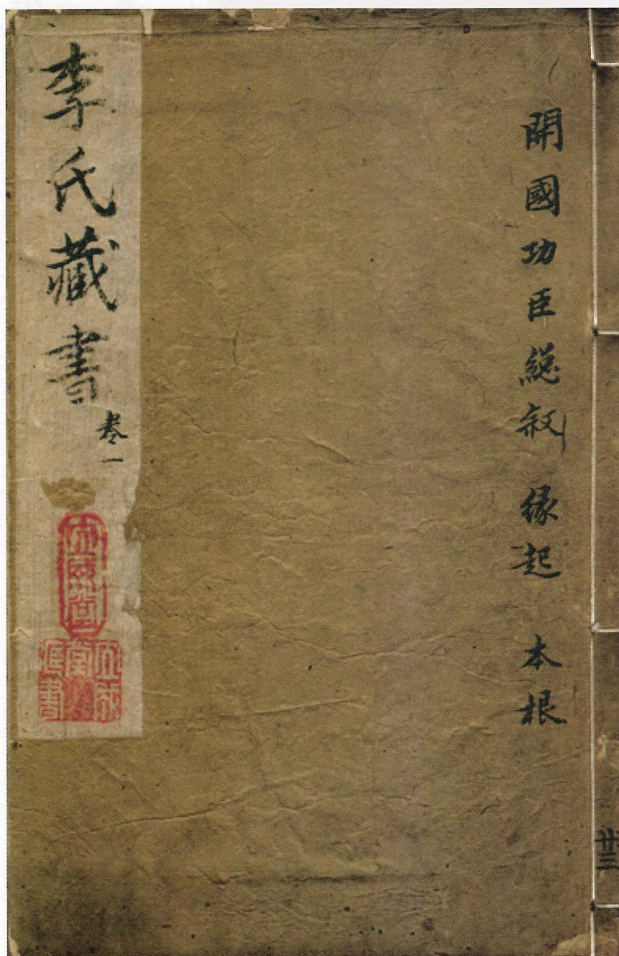 開國功臣総叙 緣起 本根
李氏藏書
卷一
廿三